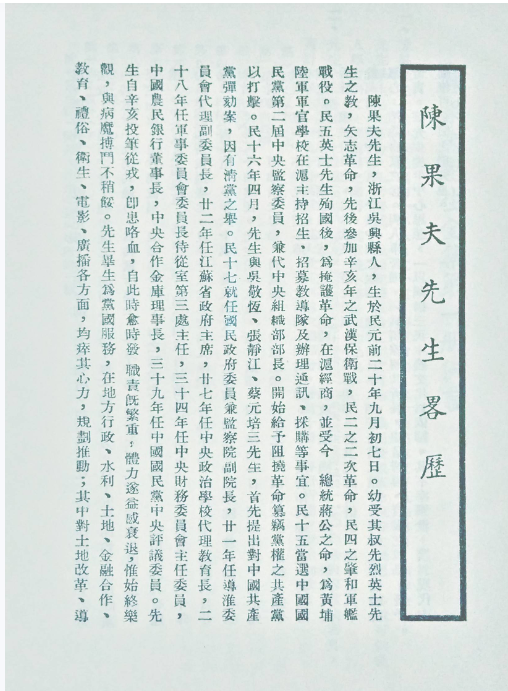 陳果夫先生畧歷
陳果夫先生，浙江吳興縣人，生於民元前二十年九月初七日。幼受其叔先烈英士先
生之教，矢志革命，先後參加辛亥年之武漢保衛戰，民二之二次革命，民四之肇和軍艦
戰役。民五英士先生殉國後，爲掩護革命，在滬經商，並受今　總統蔣公之命，爲黃埔
陸軍軍官學校在滬主持招生、招募教導隊及辦理通訊、採購等事宜。民十五當選中國國
民黨第二屆中央監察委員，兼代中央組織部部長。開始給予阻撓革命篡竊黨權之共產黨
以打擊。民十六年四月，先生與吳敬恆、張靜江、蔡元培三先生，首先提出對中國共產
黨彈劾案，因有清黨之舉。民十七就任國民政府委員兼監察院副院長，廿一年任導淮委
員會代理副委員長，廿二年任江蘇省政府主席，廿七年任中央政治學校代理教育長，二
十八年任軍事委員會委員長待從室第三處主任，三十四年任中央財務委員會主任委員，
中國農民銀行董事長，中央合作金庫理事長，三十九年任中國國民黨中央評議委員。先
生自辛亥投筆從戎，卽患咯血，自此時愈時發　職責旣繁重，體力遂益感衰退，惟始終樂
觀，與病魔搏鬥不稍餒。先生畢生爲黨國服務，在地方行政、水利、土地、金融合作、
教育、禮俗、衛生、電影、廣播各方面，均瘁其心力，規劃推動；其中對土地改革、導